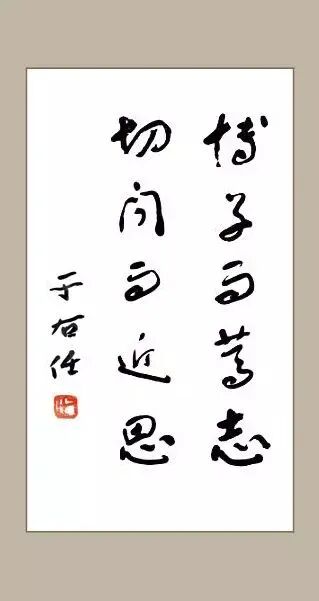 博学而笃志
切问而近思
于右任